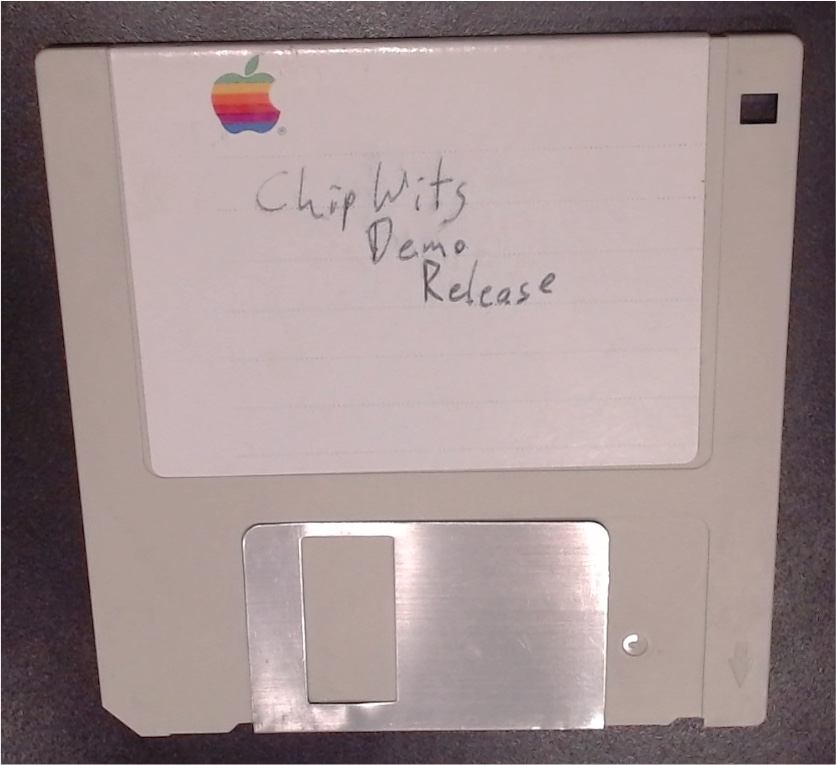 ChipWits
Demo
Release